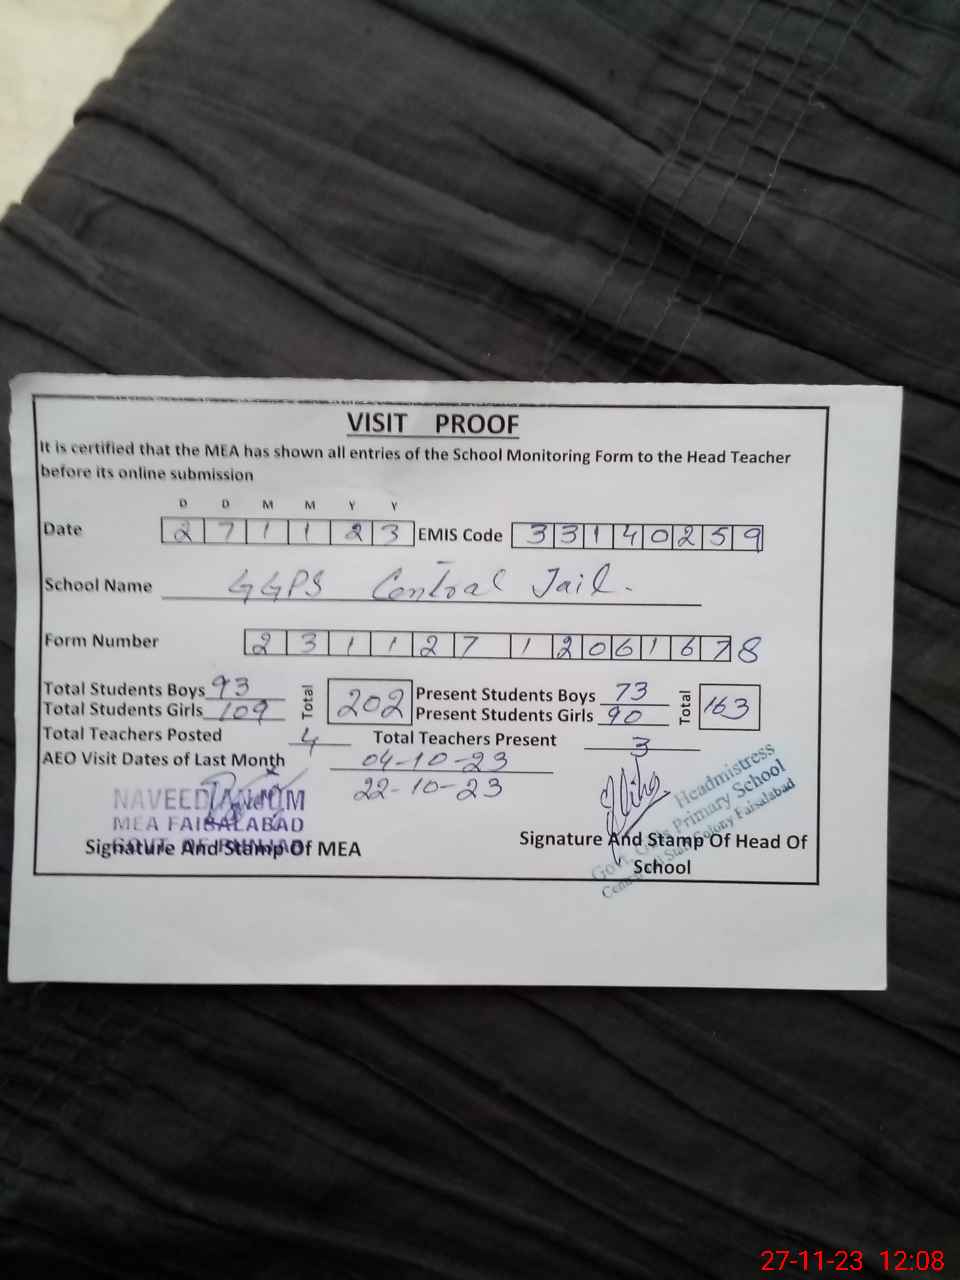 VISIT PROOF
It is certified that the MEA has shown all entries of the School Monitoring Form to the Head Teacher
before its online submission
D D M M Y Y
Date 2 7 1 1 2 3 EMIS Code 3 3 1 4 0 2 5 9
School Name GGPS Central Jail.
Form Number 2 3 1 1 2 7 1 2 0 6 1 6 7 8
Total Students Boys 93 Total 202 Present Students Boys 73 Total 163
Total Students Girls 109 Present Students Girls 90
Total Teachers Posted 4 Total Teachers Present 3
AEO Visit Dates of Last Month 04-10-23
22-10-23
NAVEED ANJUM
MEA FAISALABAD
GOVT. OF PUNJAB
Signature And Stamp Of MEA
Headmistress
Govt. Girls Primary School
Central Jail Staff Colony Faisalabad
Signature And Stamp Of Head Of
School
27-11-23 12:08